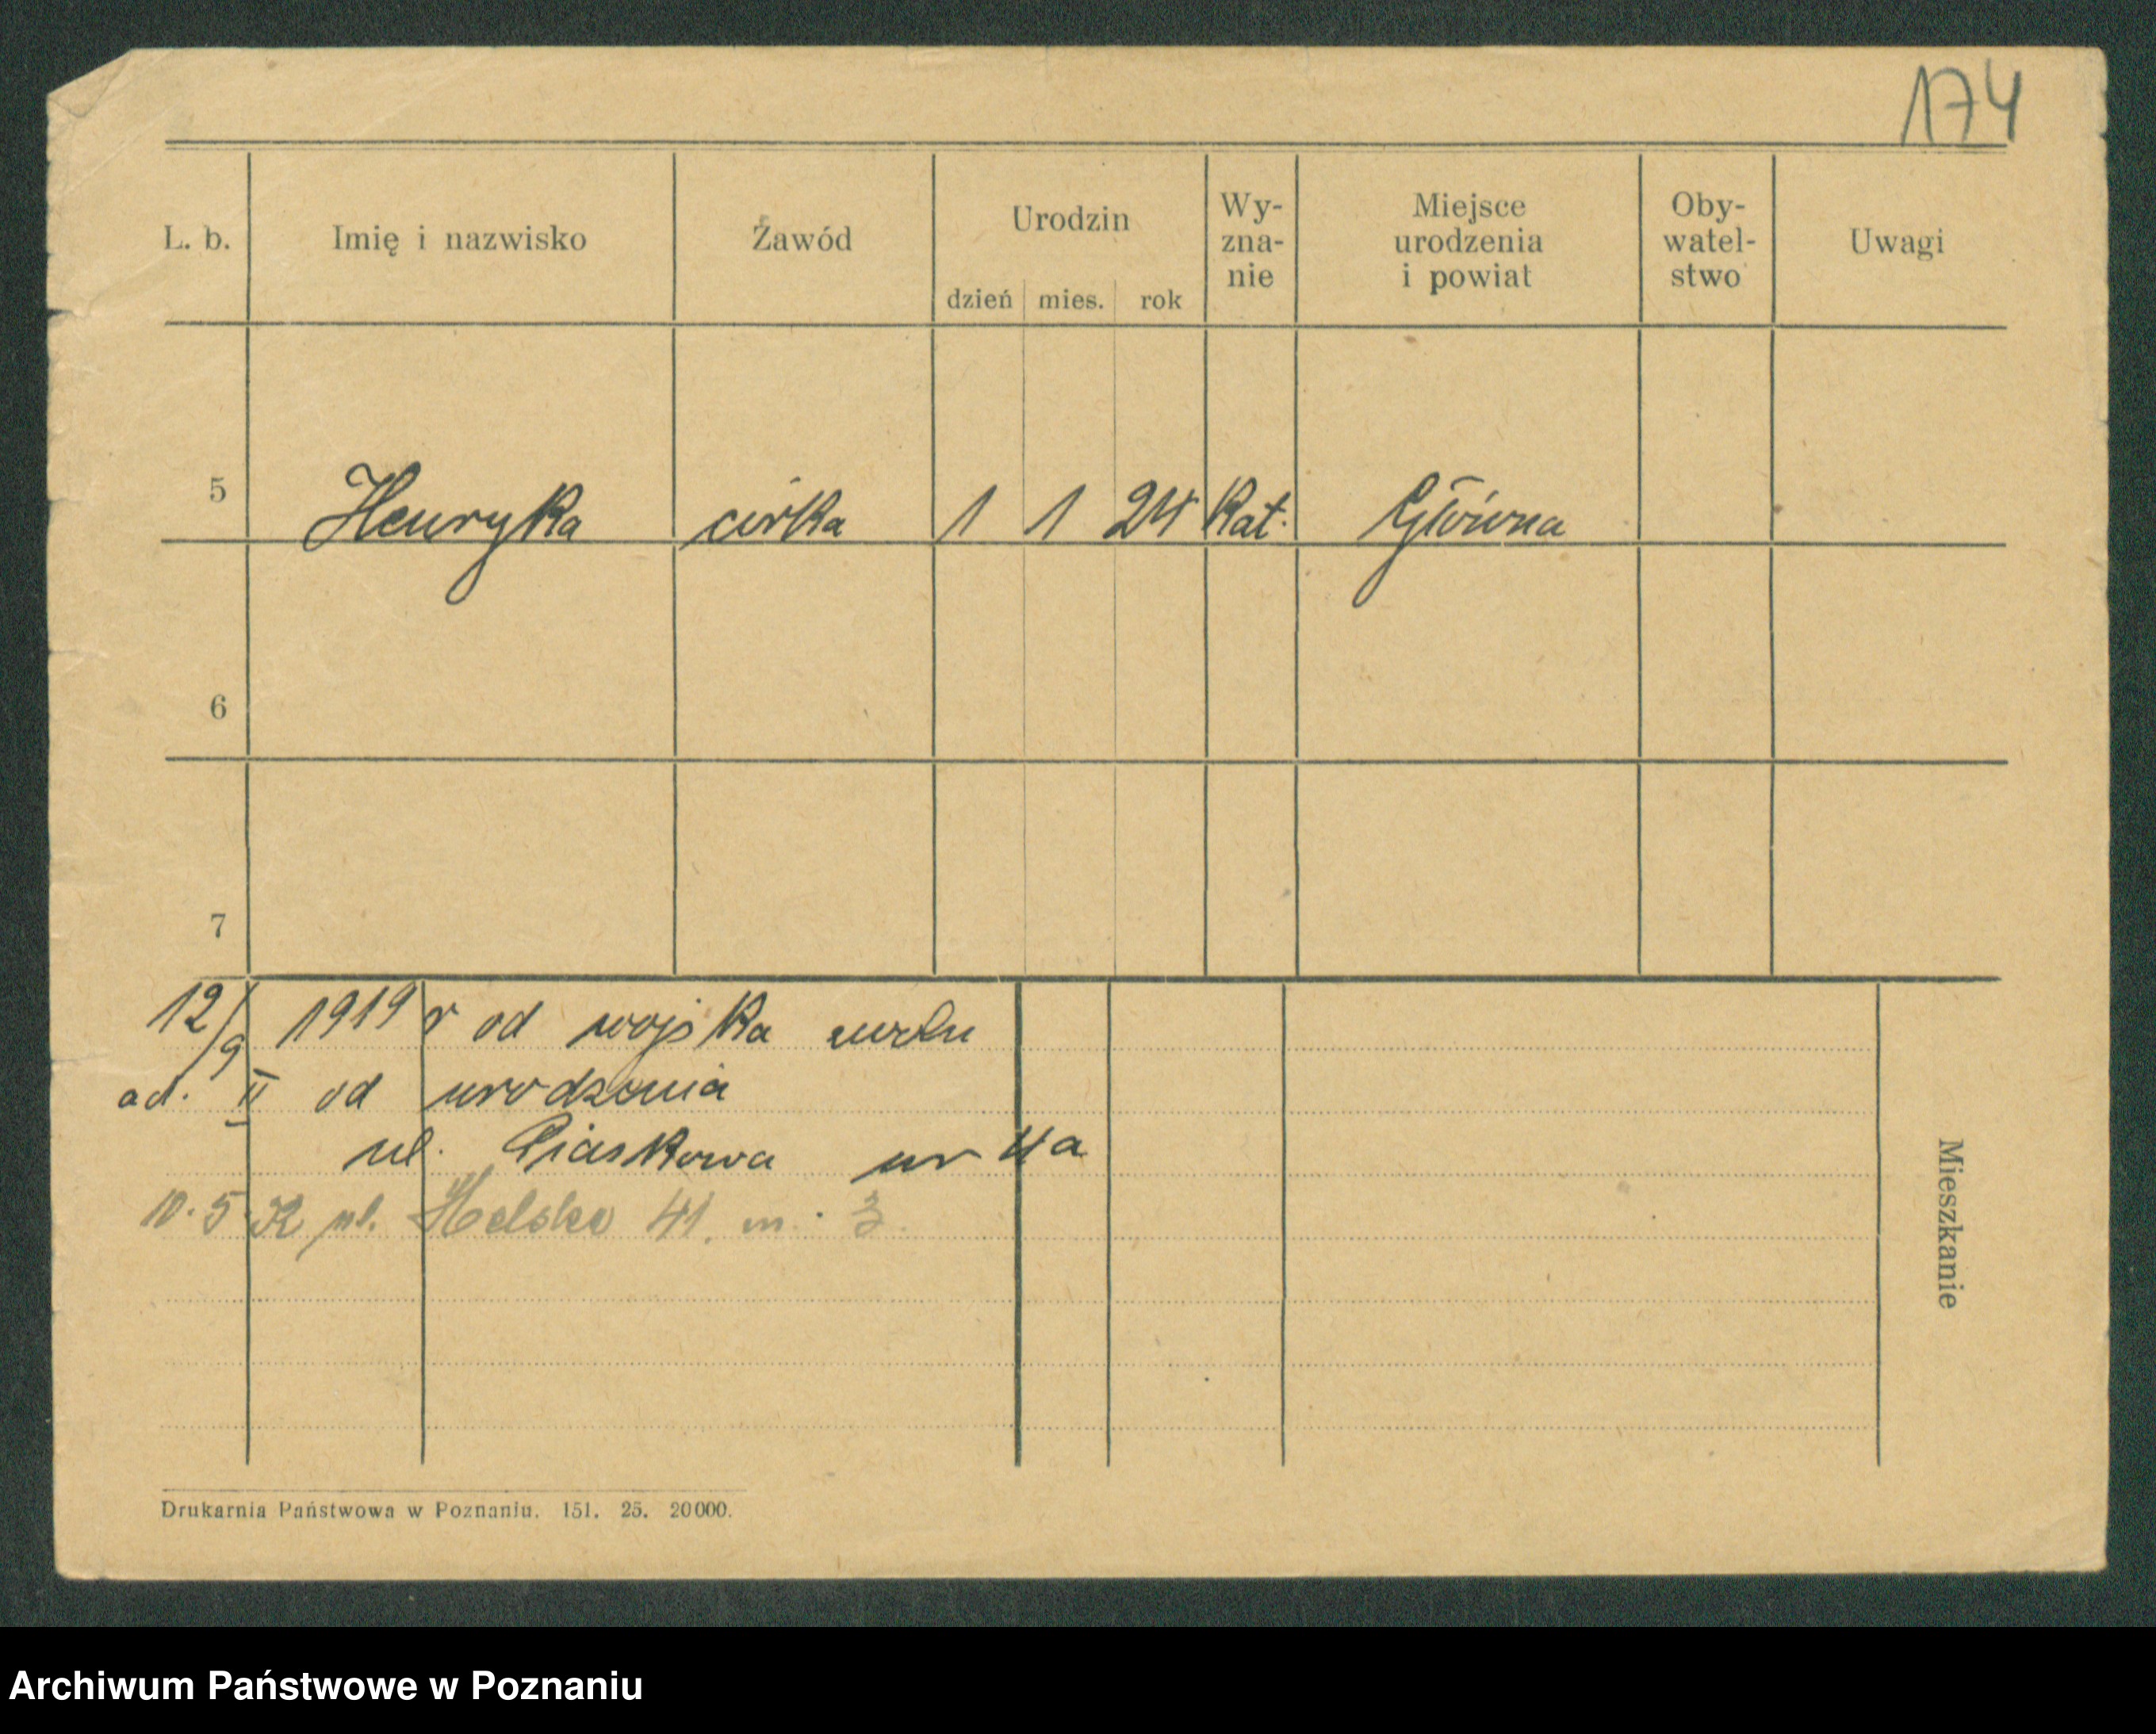 174
L. b. Imię i nazwisko Zawód Urodzin dzień mies. rok Wy-zna-nie Miejsce urodzenia i powiat Oby-watel-stwo Uwagi
5 Henryka córka 1 1 24 Kat. Główna
6
7
12/9 1919 r od wojska
ad. II od urodzenia
ul. Piaskowa nr 4a
10. 5 ul. Helska 41. m. 3.
Mieszkanie
Drukarnia Państwowa w Poznaniu. 151. 25. 20000.
Archiwum Państwowe w Poznaniu